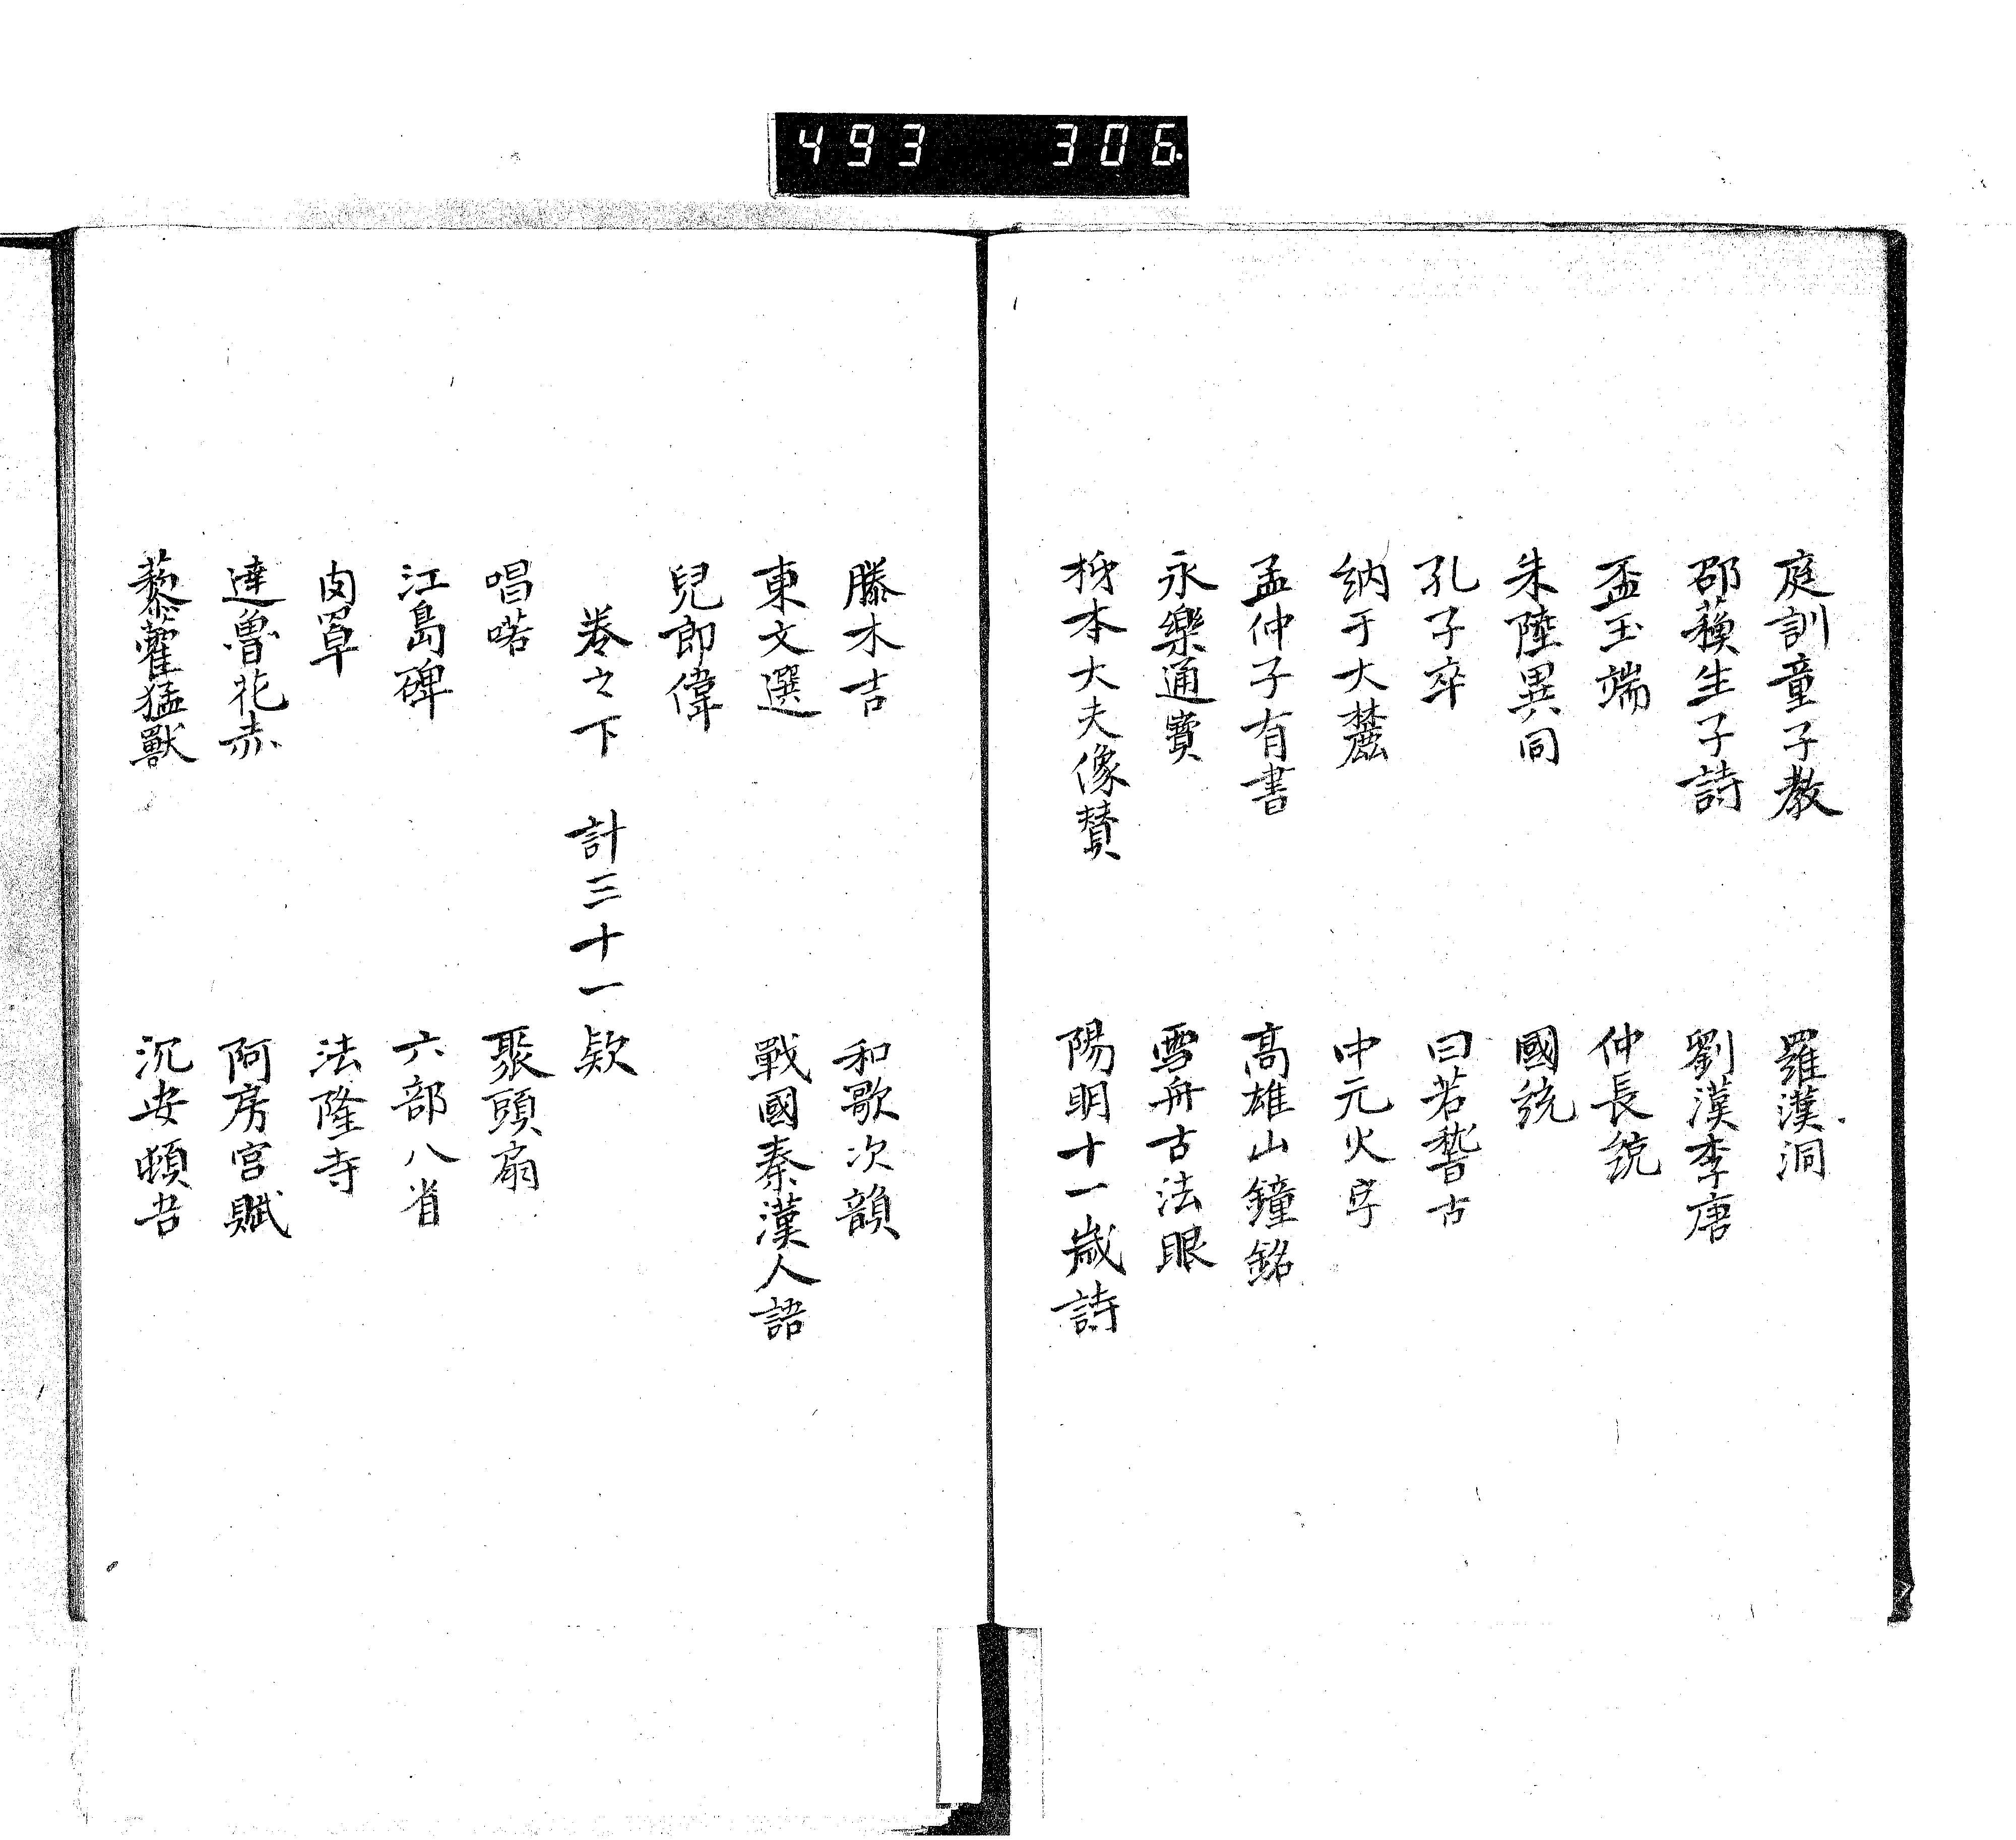 493 306.
庭訓童子教 羅漢洞
邵蘋生子詩 劉漢李唐
盃玉端 仲長統
朱陸異同 國統
孔子卒 曰若稽古
納于大麓 中元火字
孟仲子有書 高雄山鐘銘
永樂通寳 雪舟古法眼
柿本大夫像賛 陽明十一歲詩
滕木吉 和歌次韻
東文選 戰國秦漢人語
兒郎偉
卷之下 計三十一欵
唱喏 聚頭扇
江島碑 六部八省
卣罩 法隆寺
達魯花赤 阿房宮賦
藜藿猛獸 沉安頓吾